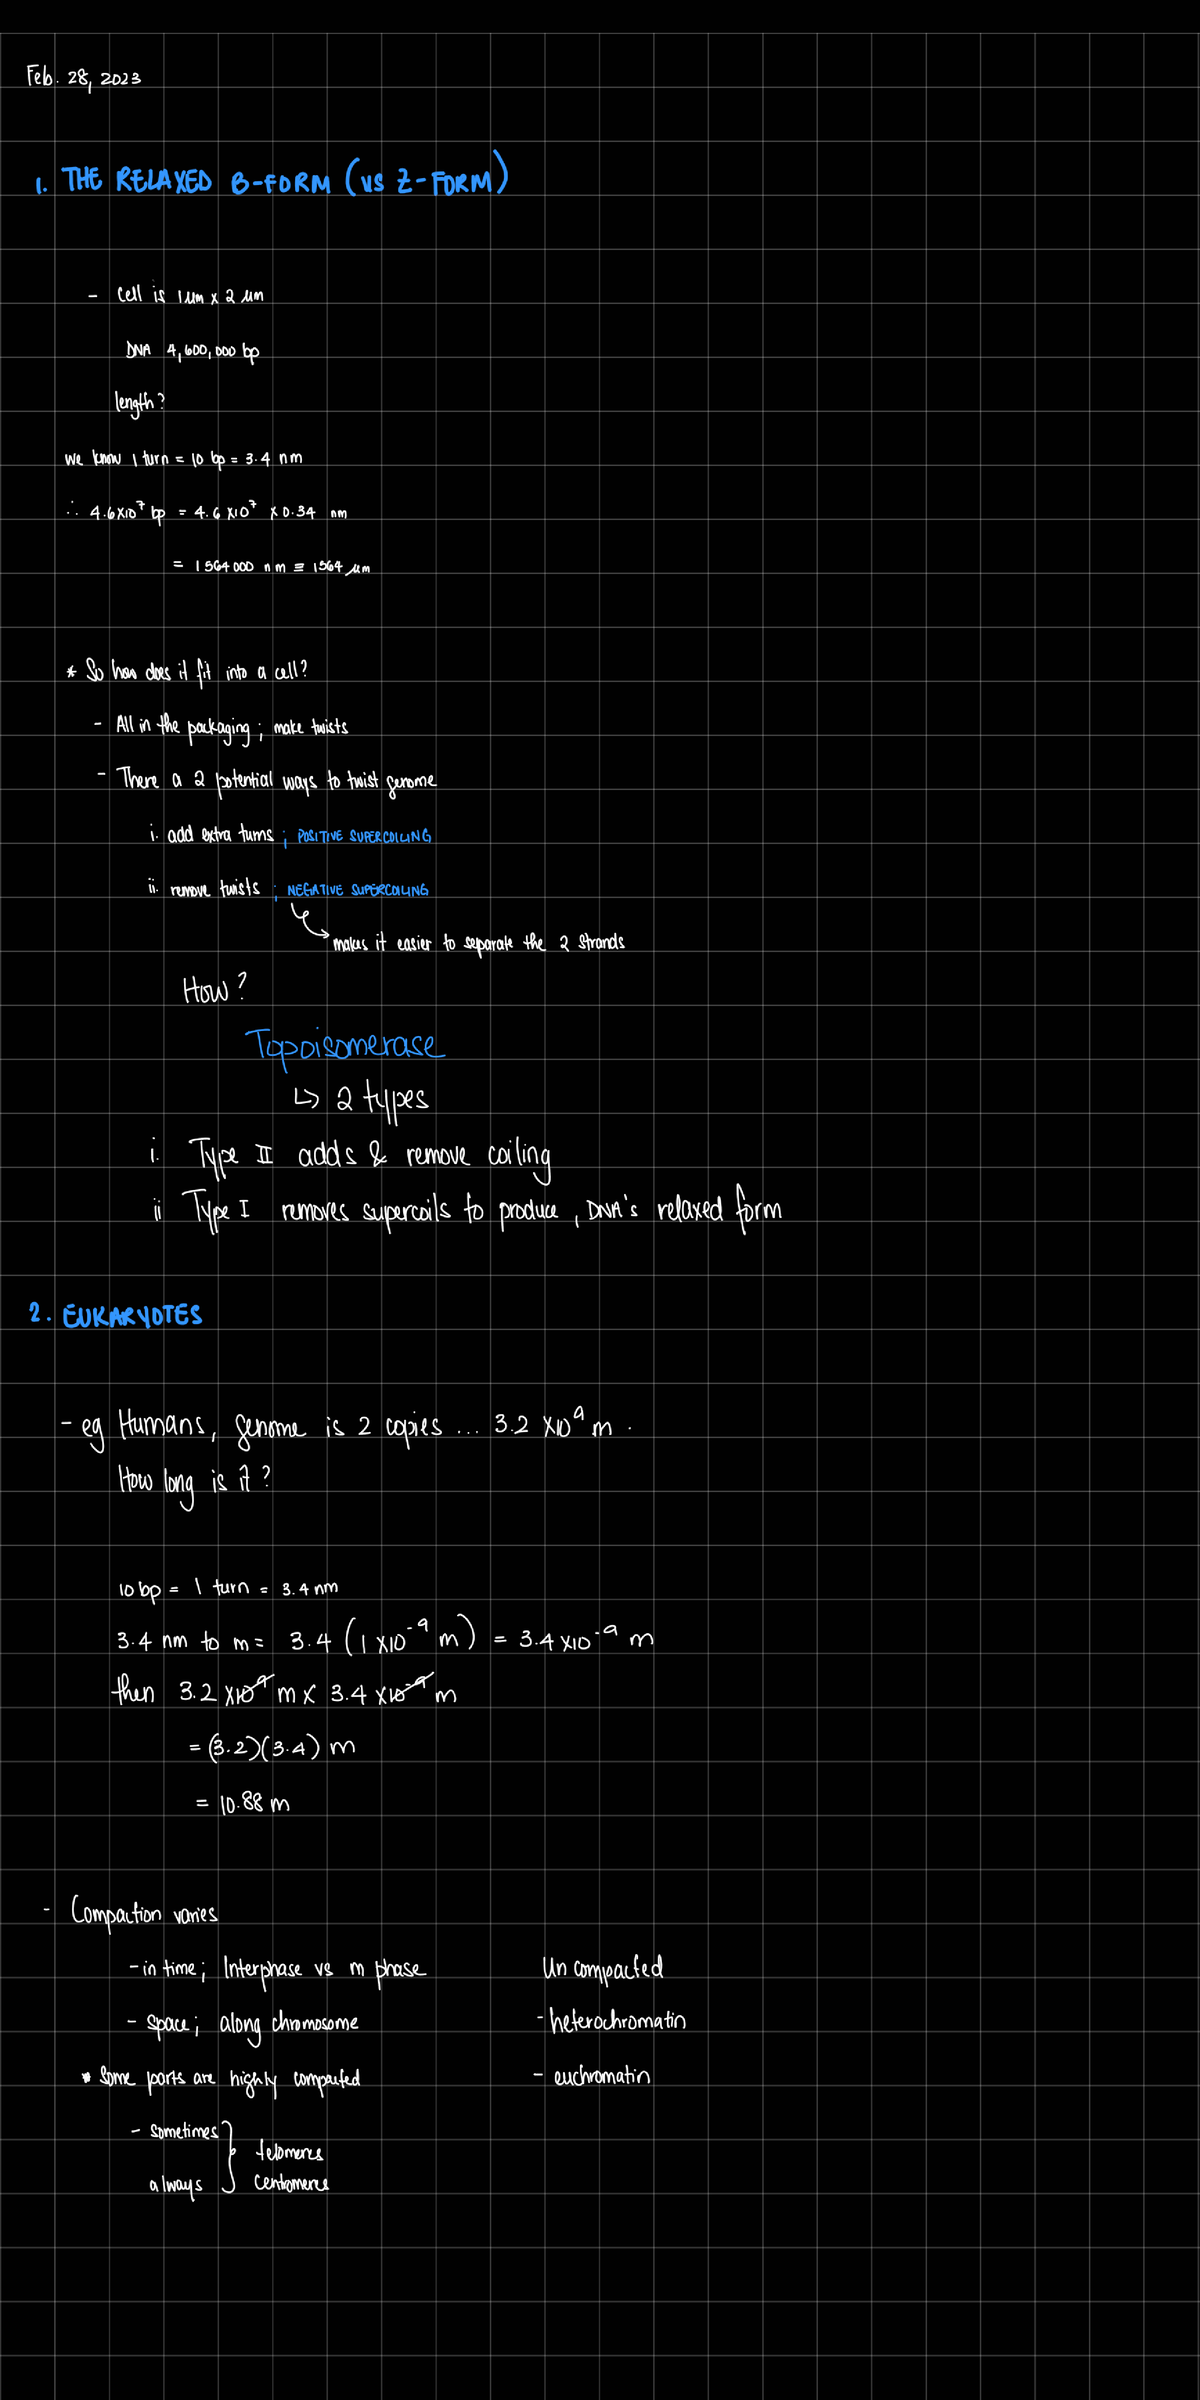 Feb. 28, 2023
1. THE RELAXED B-FORM (VS Z-FORM)
- Cell is 1 µm x 2 µm
DNA 4,600,000 bp
length?
we know 1 turn = 10 bp = 3.4 nm
∴ 4.6x10⁷ bp = 4.6 x10⁷ x 0.34 nm
= 1564000 nm ≡ 1564 µm
* So how does it fit into a cell?
- All in the packaging; make twists
- There a 2 potential ways to twist genome
i. add extra turns ; POSITIVE SUPERCOILING
ii. remove twists ; NEGATIVE SUPERCOILING
makes it easier to separate the 2 strands
How?
Topoisomerase
↳ 2 types
i. Type II adds & remove coiling
ii Type I removes supercoils to produce, DNA's relaxed form
2. EUKARYOTES
- eg Humans, genome is 2 copies ... 3.2 x10⁹ m.
How long is it?
10 bp = 1 turn = 3.4 nm
3.4 nm to m = 3.4 (1 x10⁻⁹ m) = 3.4 x10⁻⁹ m
then 3.2 x10⁹ m x 3.4 x10⁻⁹ m
= (3.2)(3.4) m
= 10.88 m
- Compaction varies
- in time; Interphase vs m phase
Un compacted
- space; along chromosome
- heterochromatin
* Some parts are highly compacted
- euchromatin
- sometimes } telomeres
always } centromeres